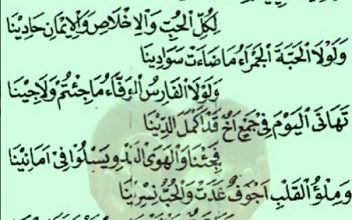 لِكُلِّ الْحُبِّ وَالْإِخْلَاصِ وَالْإِيمَانِ حَادِينَا
وَلَوْلَا الْحَبَّةَ الْحَمْرَاءُ مَا ضَاءَتْ سَوَادِينَا
وَلَوْلَا الْفَارِسُ الْوَفَّاءُ مَا جِئْتُمْ وَلَا جِينَا
تَهَانَى الْيَوْمَ فِى جَمْعِ أَخٌ قَدْ أَكْمَلَ الدِّينَا
فَجِئْنَا وَالْهَوَى الْبَدْوِ يَسْلُوا فِى أَمَانِينَا
وَمِلْؤُ الْقَلْبِ أَجْوَفٌ غَدَتْ وَالْحُبُّ